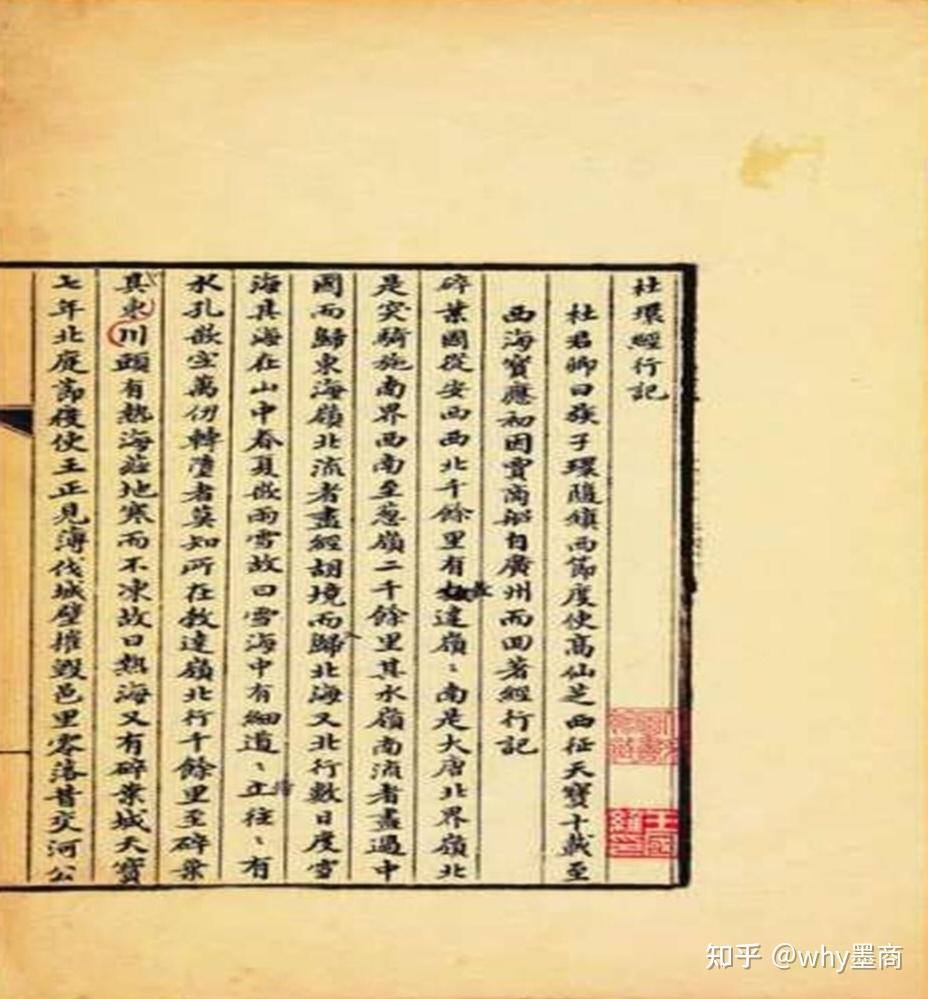 杜環經行記
杜君卿曰族子環隨鎮西節度使高仙芝西征天寶十載至
西海寶應初因賈商船自廣州而回著經行記
碎葉國從安西西北千餘里有達嶺〻南是大唐北界嶺北
是突騎施南界西南至葱嶺二千餘里其水嶺南流者盡過中
國而歸東海嶺北流者盡經胡境而歸北海又北行數日度雪
海其海在山中春夏嘗雨雪故曰雪海中有細道〻往〻有
水孔嵌空萬仞轉墮者莫知所在敦達嶺北行千餘里至碎葉
其東川頭有熱海茲地寒而不凍故曰熱海又有碎葉城天寶
七年北庭節度使王正見薄伐城壁摧毀邑里零落昔交河公
王國維印
知乎 @why墨商